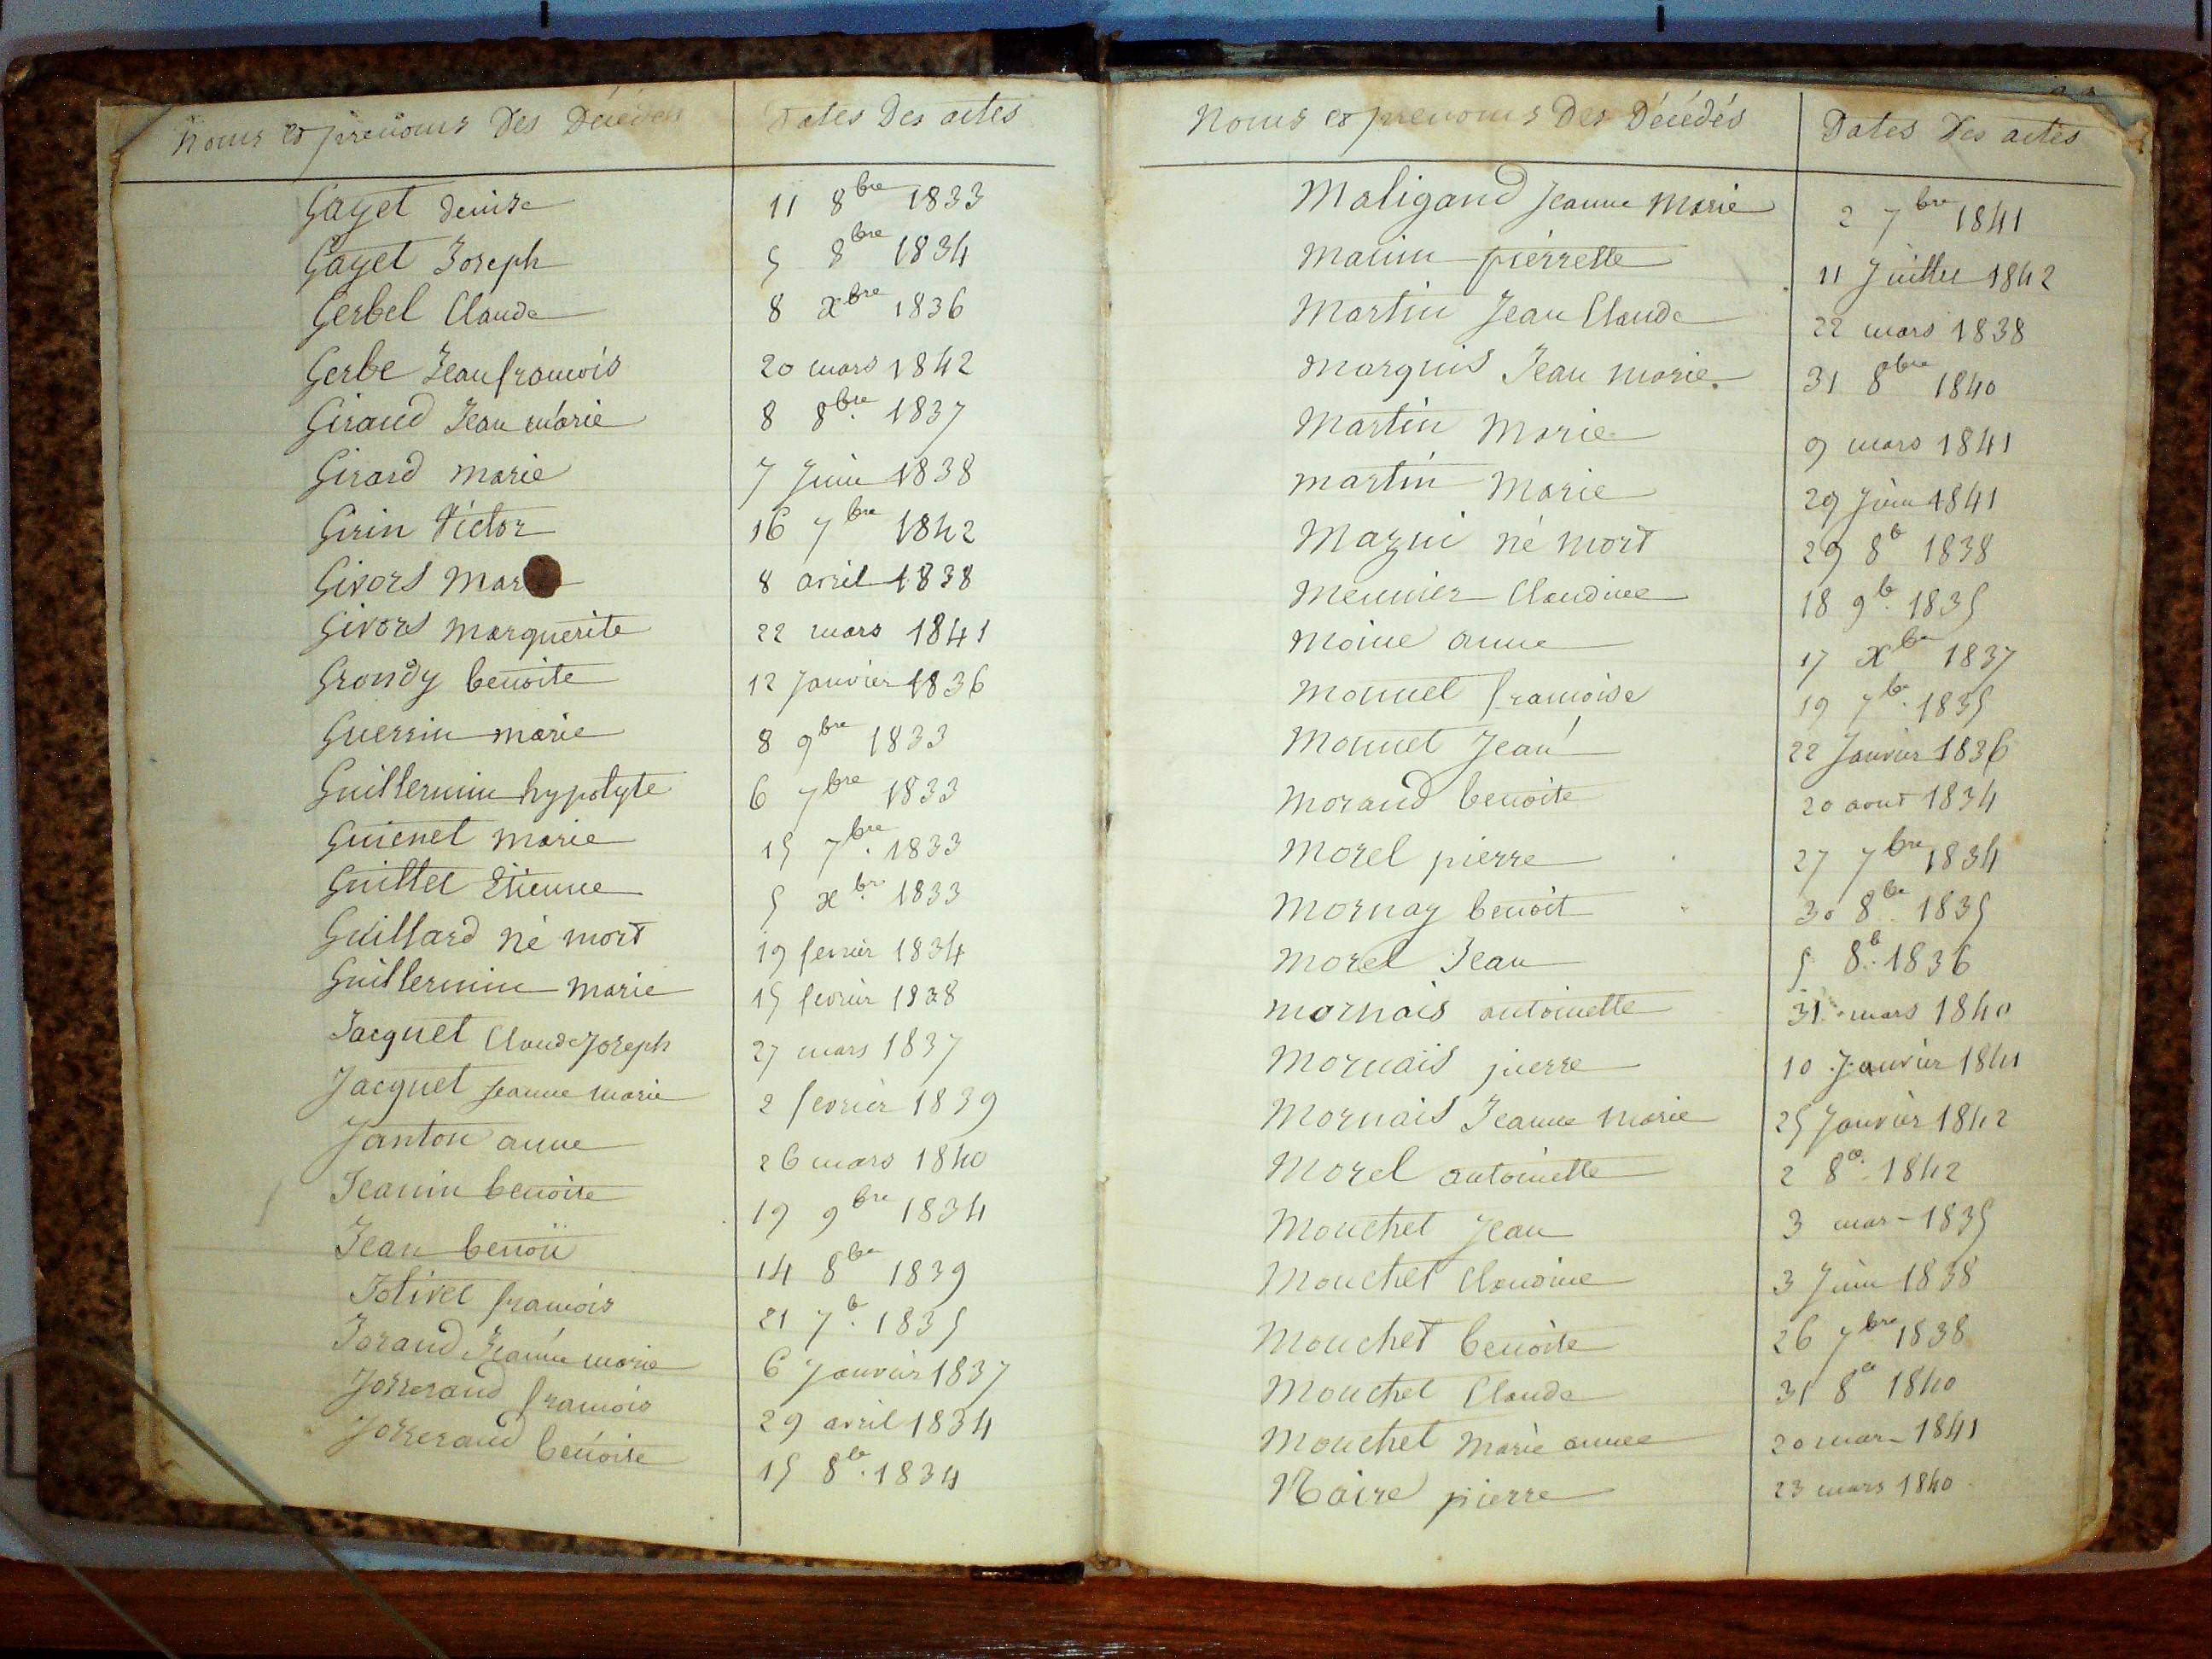 Noms et prenoms Des Décédés Dates Des actes
Gayet denise 11 8bre 1833
Gayet Joseph 5 8bre 1834
Gerbel Claude 8 xbre 1836
Gerbe Jean francois 20 mars 1842
Giraud Jean marie 8 8bre 1837
Girard marie 7 Juin 1838
Girin Victor 16 7bre 1842
Givors 8 avril 1838
Givors marguerite 22 mars 1841
Grondy benoite 12 Janvier 1836
Guerrin marie 8 9bre 1833
Guillermin hypolyte 6 7bre 1833
Guienet marie 15 7bre 1833
Guillet Etienne 5 xbre 1833
Guillard né mort 19 fevrier 1834
Guillermin marie 15 fevrier 1838
Jacquet Claude Joseph 27 mars 1837
Jacquet Jeanne marie 2 fevrier 1839
Janton anne 26 mars 1840
Jeanin benoite 19 9bre 1834
Jean benoit 14 8bre 1839
Jolivet francois 21 7b. 1835
Jorand Jeanne marie 6 Janvier 1837
Josserand francois 29 avril 1834
Josserand benoite 15 8b. 1834
Noms et prenoms Des Décédés Dates Des actes
Maligand Jeanne Marie 2 7bre 1841
pierrette 11 Juillet 1842
Martin Jean Claude 22 mars 1838
Marquis Jean marie 31 8bre 1840
Martin Marie 9 mars 1841
martin Marie 29 Juin 1841
Mazui né mort 29 8b 1838
Meunier Claudine 18 9b. 1835
Moine anne 17 xbre 1837
Monnet francoise 19 7b. 1835
Monnet Jean 22 Janvier 1836
Morand benoite 20 aout 1834
Morel pierre 27 7bre 1834
Mornay benoit 30 8bre 1835
Morel Jean 5 8b. 1836
mornais antoinette 31 mars 1840
Mornais pierre 10 Janvier 1841
Mornais Jeanne Marie 25 Janvier 1842
Morel antoinette 2 8b. 1842
Mouchet Jean 3 mar 1835
Mouchet Claudine 3 Juin 1838
Mouchet benoite 26 7bre 1838
Mouchet Claude 31 8b 1840
Mouchet Marie annee 20 mar 1841
Noire pierre 23 mars 1840